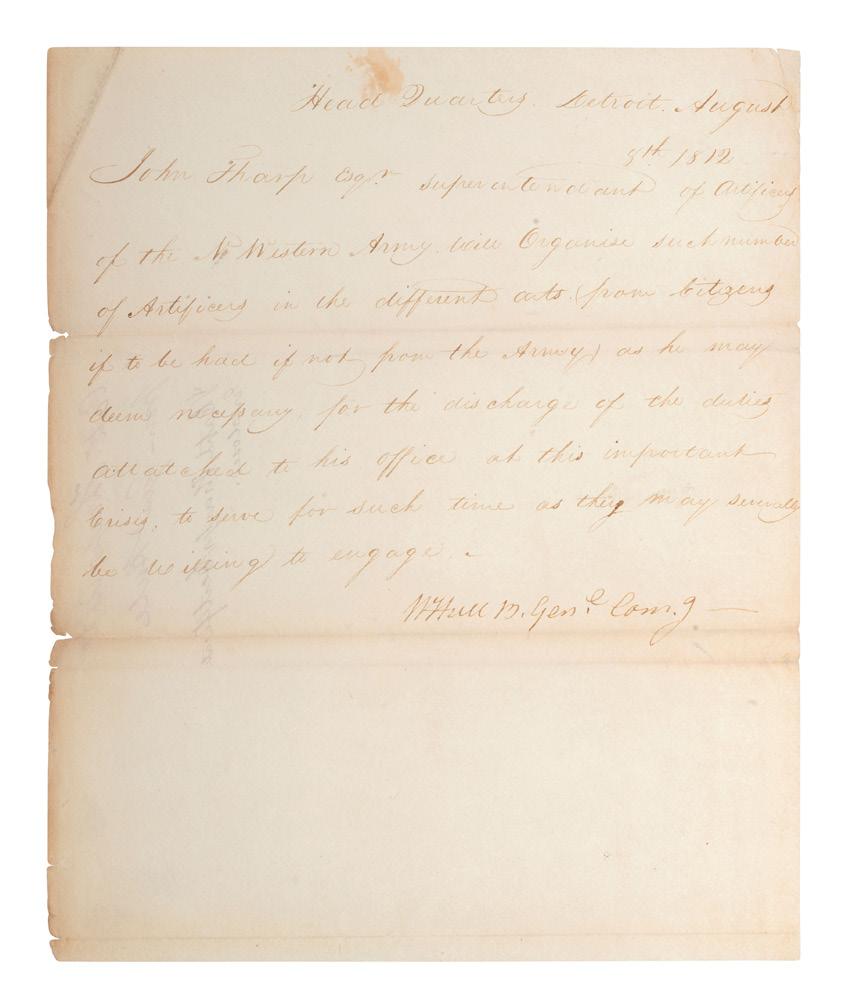 Head Quarters. Detroit. August
8th 1812
John Tharp Esqr superintendant of Artificers
of the No Western Army. will Organise such number
of Artificers in the different arts (from Citizens
if to be had if not from the Army) as he may
deem necessary, for the discharge of the duties
attatched to his office at this important
Crisis, to serve for such time as they may severally
be willing to engage. -
W Hull B. Genl Comg —